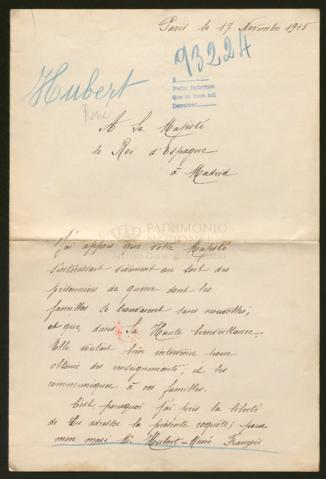 Paris le 17 Novembre 1915
93224
Hubert
René
A
Pedir informes
Que se hace allí
Devolver
A Sa Majesté
le Roi d'Espagne
à Madrid
PATRIMONIO
NACIONAL
J'ai appris que votre Majesté
s'intéressait vivement au sort des
prisonniers de guerre dont les
familles se trouvaient sans nouvelles;
et que, dans Sa Haute bienveillance,
Elle voulait bien intervenir pour
obtenir des renseignements, et les
communiquer à ces familles.
C'est pourquoi j'ai pris la liberté
de Lui adresser la présente requête; pour
mon mari M. Hubert-René François